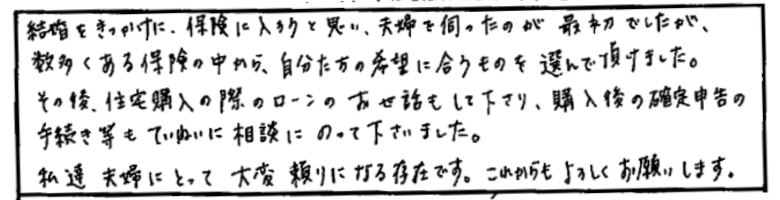 結婚をきっかけに、保険に入ろうと思い、夫婦で伺ったのが最初でしたが、
数多くある保険の中から、自分たちの希望に合うものを選んで頂けました。
その後、住宅購入の際のローンのお世話もして下さり、購入後の確定申告の
手続き等もていねいに相談にのって下さいました。
私達夫婦にとって大変頼りになる存在です。これからもよろしくお願いします。